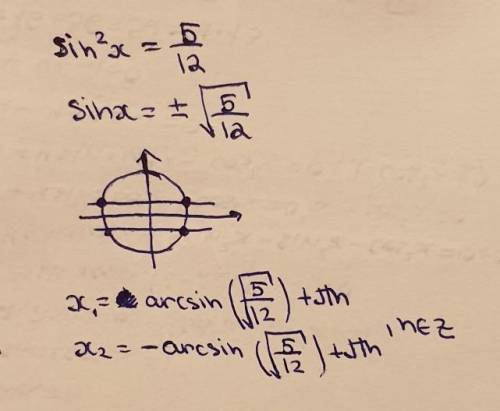 sin²x = 5/12
sinx = ± √(5/12)
x₁ = arcsin(√(5/12)) + πn
x₂ = -arcsin(√(5/12)) + πn , n∈Z